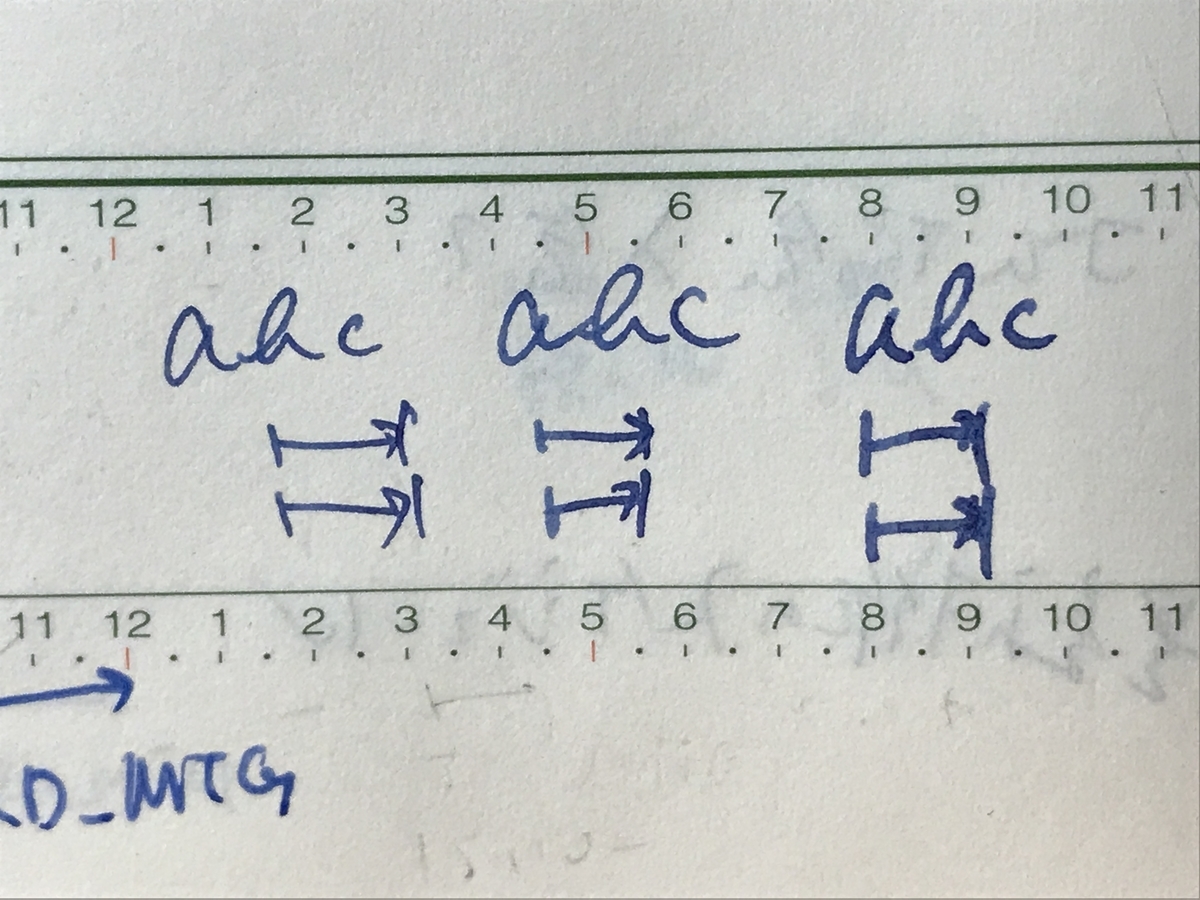 11 12 1 2 3 4 5 6 7 8 9 10 11
abc abc abc
11 12 1 2 3 4 5 6 7 8 9 10 11
D_MTG